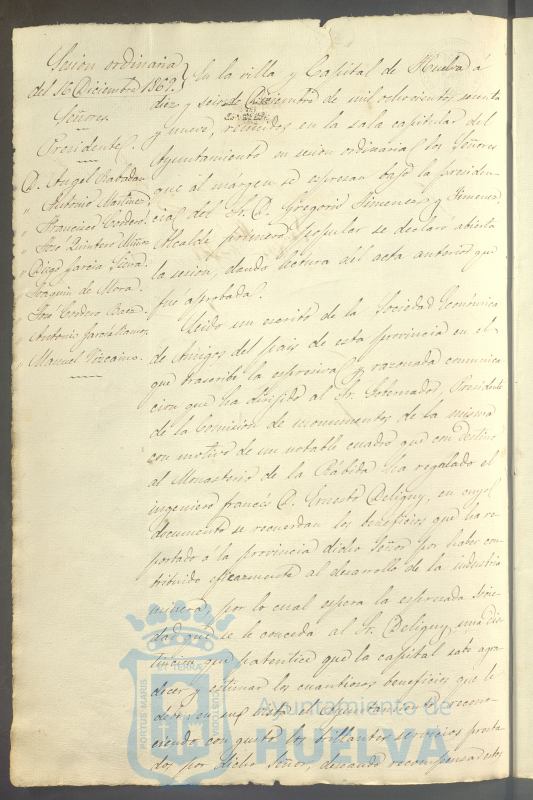 Sesion ordinaria
del 16 Diciembre 1869.
Señores.
Presidente.
D. Angel Rabadan
" Antonio Martinez
" Francisco Cordero
" José Quintero Muñoz
" Diego García
" Joaquin de Mora.
" José Cordero Baez.
" Antonio García Ramos
" Manuel Vizcaino.
En la villa y Capital de Huelva á
diez y seis de Diciembre de mil ochocientos sesenta
y nueve, reunidos en la sala capitular del
Ayuntamiento en sesion ordinaria los Señores
que al márgen se espresan bajo la presiden
cia del Sr. D. Gregorio Jimenez y Jimenez,
Alcalde primero popular se declaró abierta
la sesion, dando lectura del acta anterior que
fué aprobada.
Leido un escrito de la Sociedad Económica
de Amigos del pais de esta provincia en el
que trascribe la espresiva y razonada comunica
cion que ha dirigido al Sr. Gobernador, Presidente
de la Comision de monumentos de la misma
con motivo de un notable cuadro que con destino
al Monasterio de la Rábida ha regalado el
ingeniero francés D. Ernesto Deligny, en cuyo
documento se recuerdan los beneficios que ha re
portado á la provincia dicho Señor por haber con
tribuido eficazmente al desarrollo de la industria
minera, por lo cual espera la espresada Socie
dad que se le conceda al Sr. Deligny una dis
tincion que patentice que la capital sabe agra
decer y estimar los cuantiosos beneficios que le
debe; en su vista el Ayuntamiento recono
ciendo con gusto los brillantes servicios presta
dos por dicho Señor, deseando recompensar estos
PORTUS MARIS
ET TERRAE
CUSTODIA
Ayuntamiento de
HUELVA